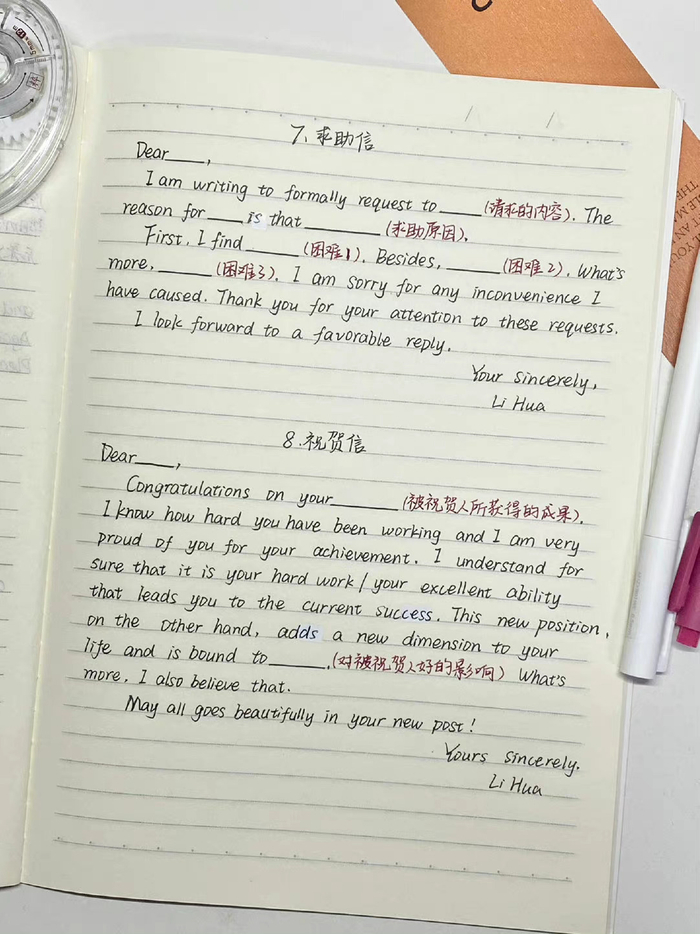 7. 求助信
Dear____,
I am writing to formally request to ____ (请求的内容). The
reason for ____ is that ________ (求助原因).
First, I find _____ (困难1). Besides, _____ (困难2). What's
more, _____ (困难3). I am sorry for any inconvenience I
have caused. Thank you for your attention to these requests.
I look forward to a favorable reply.
Your sincerely,
Li Hua
8. 祝贺信
Dear____,
Congratulations on your_______ (被祝贺人所获得的成果).
I know how hard you have been working and I am very
proud of you for your achievement. I understand for
sure that it is your hard work / your excellent ability
that leads you to the current success. This new position,
on the other hand, adds a new dimension to your
life and is bound to ______. (对被祝贺人好的影响) What's
more, I also believe that.
May all goes beautifully in your new post!
Yours sincerely.
Li Hua